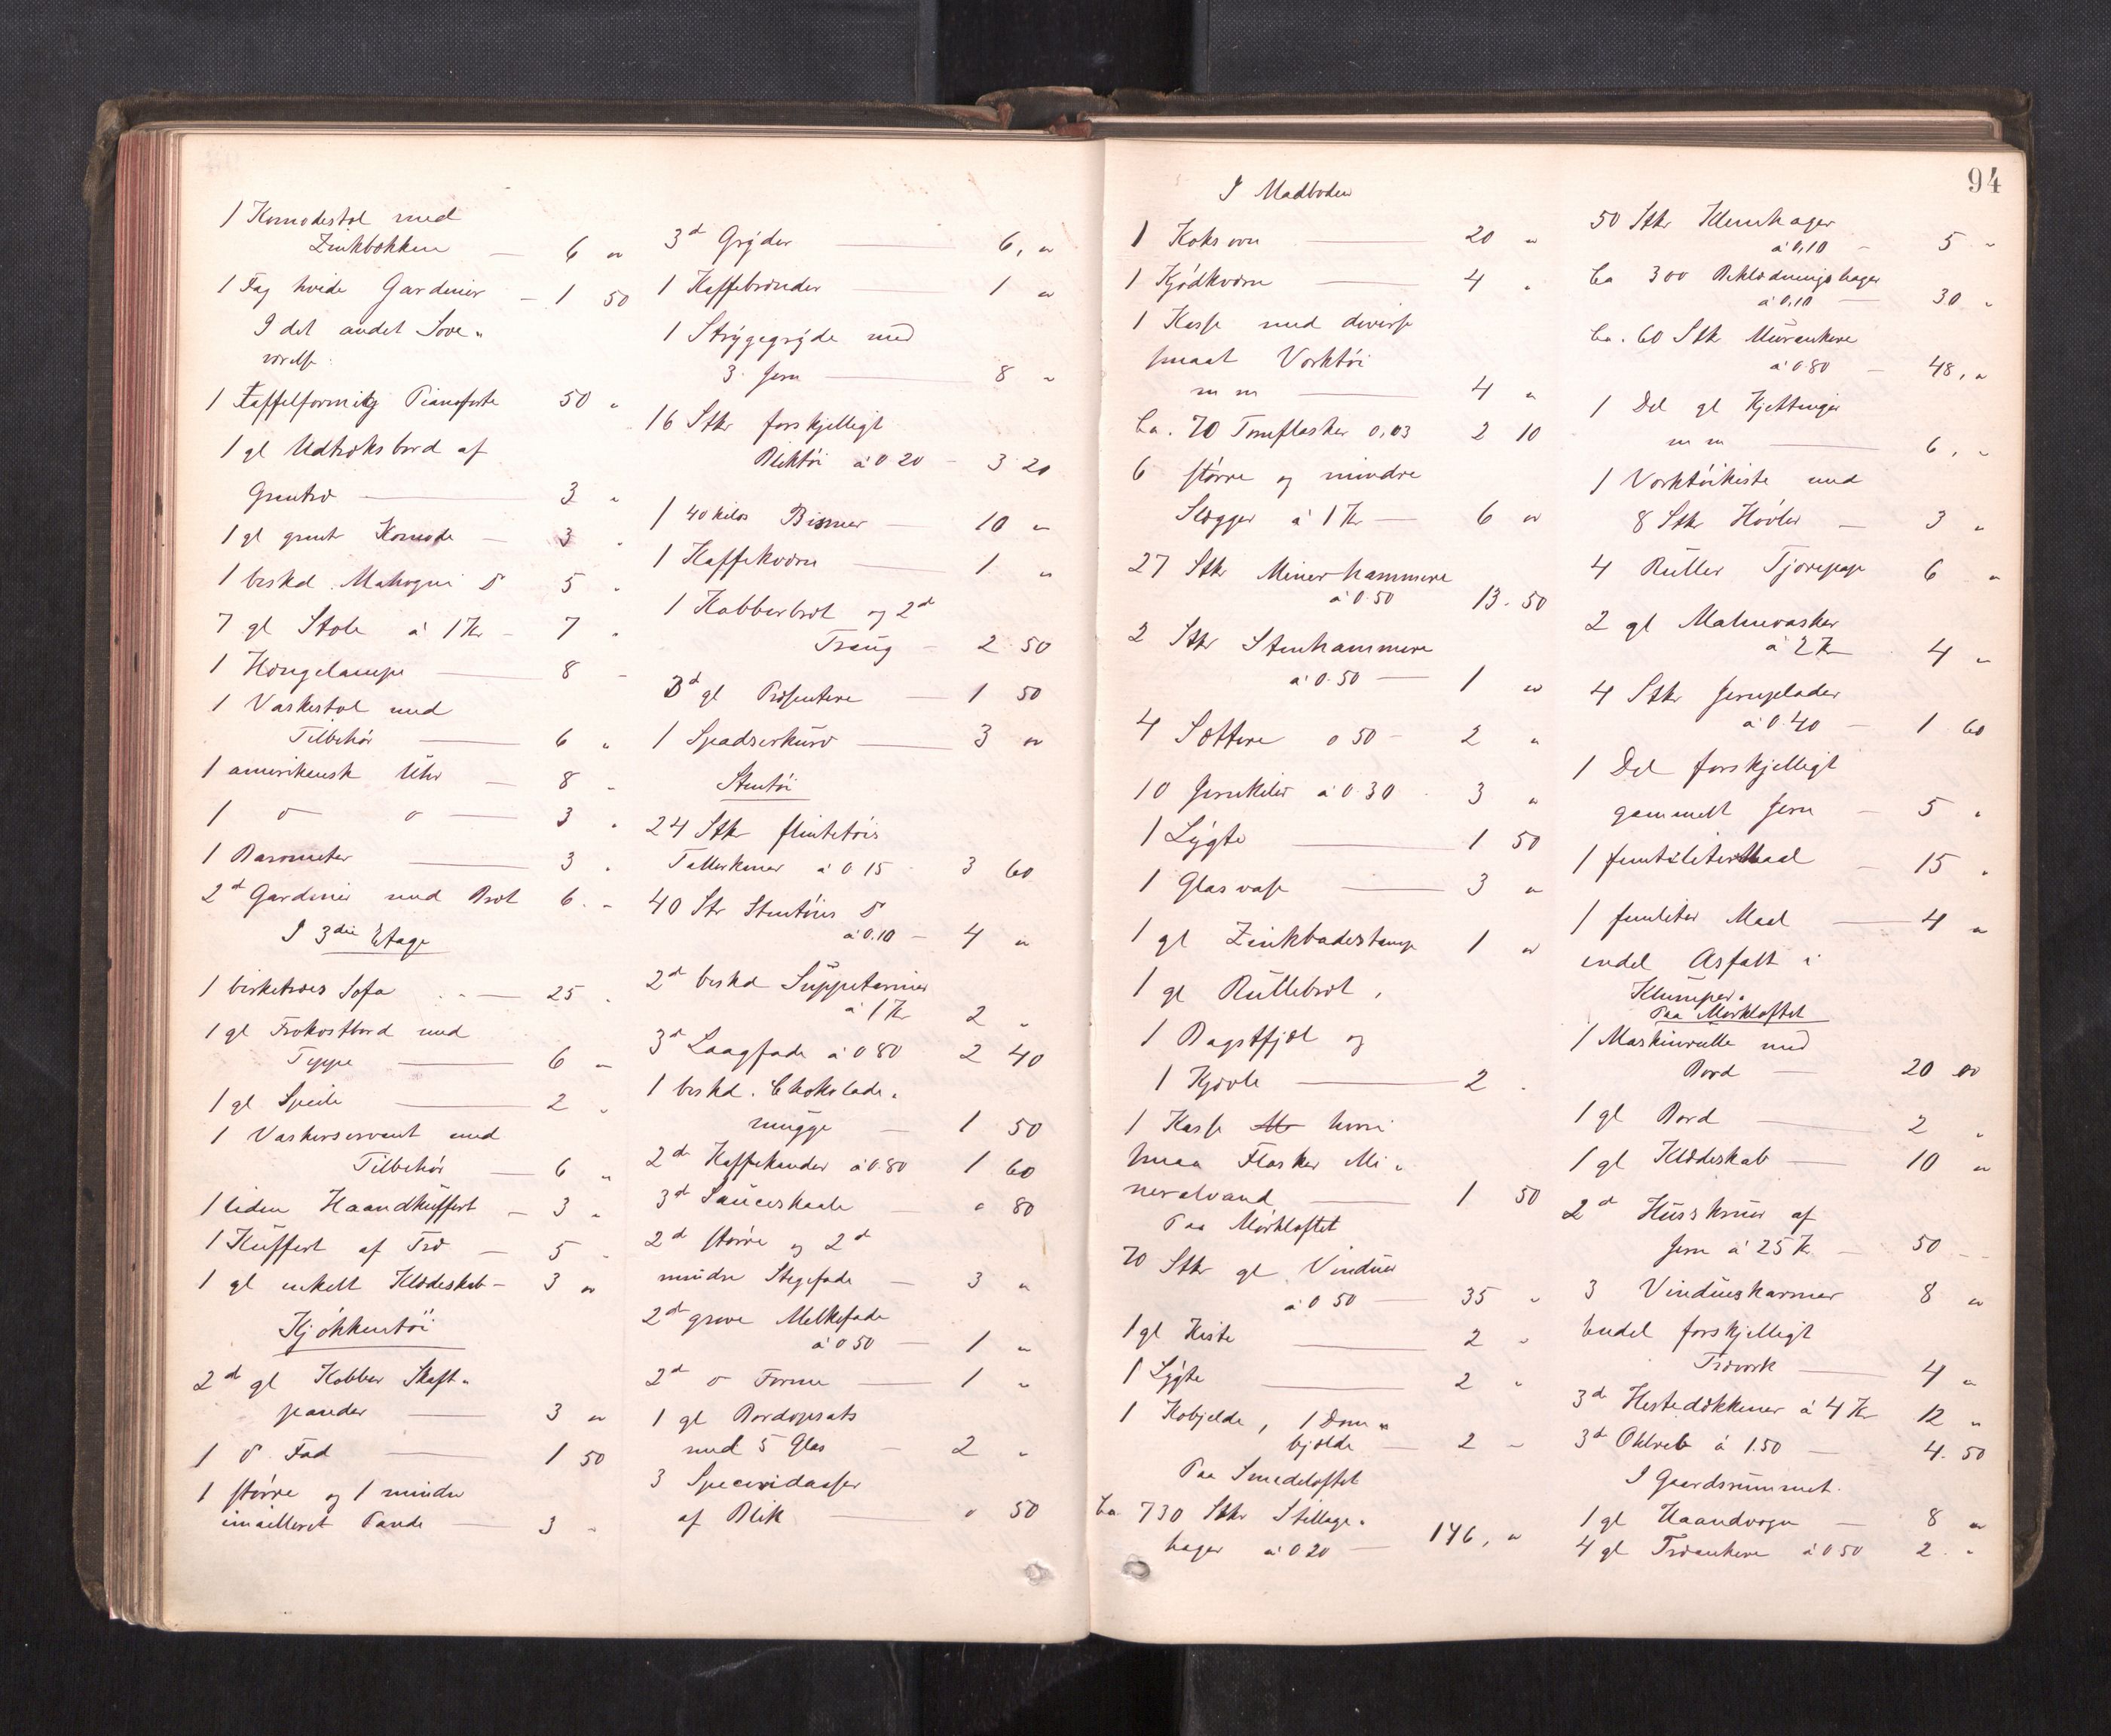 1 Komodestol med
Zinkbækken — 6 "
1 Fag hvide Gardiner — 1 50
I det andet Sove-
værelse.
1 Taffelformig Pianoforte 50 "
1 gl Udtræksbord af
Grantræ — 3 "
1 gl grønt Komode — 3 "
1 beskd. Mahogni do 5 "
7 gl Stole á 1 Kr — 7 "
1 Hængelampe — 8 "
1 Vaskestol med
Tilbehør — 6 "
1 amerikansk Uhr — 8 "
1 do do — 3 "
1 Barometer — 3 "
2d Gardiner med Bræt 6 "
I 3die Etage
1 birketræes Sofa — 25 "
1 gl Frokostbord med
Teppe — 6 "
1 gl Speile — 2 "
1 Vaskeservant med
Tilbehør — 6 "
1 liden Haandkuffert — 3 "
1 Kuffert af Træ — 5 "
1 gl enkelt Klædeskab — 3 "
Kjøkkentøi
2d gl Kobber Skaft-
pander — 3 "
1 do Fad — 1 50
1 større og 1 mindre
emailleret Pande — 3 "
3d Gryder — 6, "
1 Kaffebrænder — 1 "
1 Strygegryde med
3 Jern — 8 "
16 Stkr forskjelligt
Bliktøi á 0 20 — 3 20
1 40 kilos Bismer — 10 "
1 Kaffekværn — 1 "
1 Kobberbræt og 2d
Traug — 2 50
3d gl Præsentere — 1 50
1 Spadserkurv — 3 "
Stentøi
24 Stkr flintetøis
Tallerkener á 0 15 3 60
40 Str Stentøies do
á 0.10 — 4 "
2d beskd Suppeterriner
á 1 Kr 2 "
3d Laagfade á 0 80 2 40
1 beskd. Chokolade-
mugge — 1 50
2d Kaffekander á 0.80 1 60
3d Sauceskaale — 0 80
2d større og 2d
mindre Stegefade — 3 "
2d grove Melkefade
á 0 50 — 1 "
2d do Forme — 1 "
1 gl Bordopsats
med 5 Glas — 2 "
3 Speceridaaser
af Blik — 0 50
94
I Madboden
1 Koksovn — 20 "
1 Kjødkværn — 4 "
1 Kasse med diverse
smaat Værktøi
m m — 4 "
Ca. 70 Tomflasker 0,03 2 10
6 større og mindre
Slægger á 1 Kr — 6 "
27 Stkr Minerhammere
á 0.50 13.50
2 Stkr Stenhammere
á 0.50 — 1 "
4 Søttere 0 50 — 2 "
10 Jernkiler á 0.30 3 "
1 Lygte — 1 50
1 Glasvase — 3 "
1 gl Zinkbadestamp 1 "
1 gl Rullebræt,
1 Bagstfjøl og
1 Kjævle — 2 "
1 Kasse hvori
smaa Flasker Mi-
neralvand — 1 50
Paa Mørkloftet
70 Stkr gl Vinduer
á 0 50 — 35 "
1 gl Kiste — 2 "
1 Lygte — 2 "
1 Kobjelde, 1 Dom-
bjælde — 2 "
Paa Smedeloftet
Ca. 730 Stkr Stillage-
hager á 0 20 — 146, "
50 Stkr Klemhager
á 0,10 — 5 "
Ca 300 Beklædningshager
á 0,10 — 30 "
Ca. 60 Stk Murankere
á 0 80 — 48, "
1 Del gl Kjettinger
m m — 6, "
1 Værktøikiste med
8 Stkr Høvler — 3 "
4 Ruller Tjærepap 6 "
2 gl Malmvasker
á 2 Kr 4 "
4 Stkr Jernplader
á 0.40 — 1 60
1 Del forskjelligt
gammelt Jern — 5 "
1 femtiliter Maal — 15 "
1 femliter Maal — 4 "
endel Asfalt i
Klumper.
Paa Mørkloftet
1 Maskinrulle med
Bord — 20 00
1 gl Bord — 2 "
1 gl Klædeskab — 10 "
2d Husskruer af
Jern á 25 Kr — 50 "
3 Vindueskarmer 8 "
Endel forskjelligt
Træværk — 4 "
3d Hestedækkener á 4 Kr 12 "
3d Oktreb á 1.50 — 4.50
I Gaardsrummet.
1 gl Haandvogn — 8 "
4 gl Træankere á 0 50 2 "